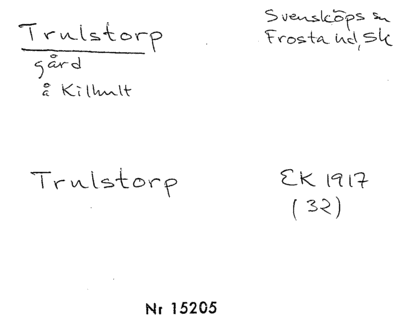 Trulstorp
gård
å Killhult
Svensköps sn
Frosta hd, Sk
Trulstorp
EK 1917
(32)
Nr 15205